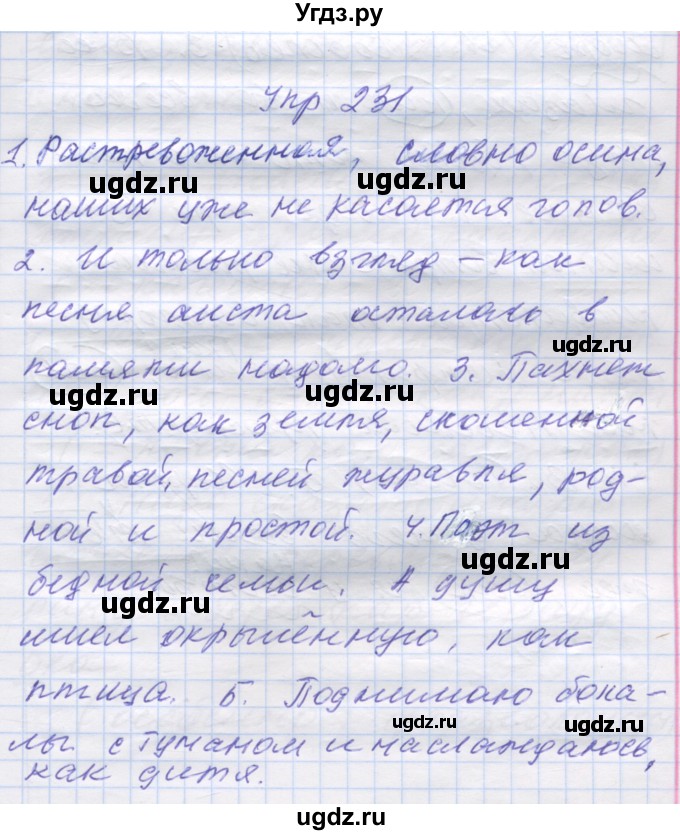 Угдз.ру
Упр 231
1. Растревоженная, словно осина,
наших уже не касается голов.
2. И только взгляд – как
песня аиста осталась в
памяти надолго. 3. Пахнет
сноп, как земля, скошенной
травой, песней журавля, род-
ной и простой. 4. Поэт из
бедной семьи. А душу
имел окрылённую, как
птица. 5. Поднимаю бока-
лы с туманом и наслаждаюсь,
как дитя.
ugdz.ru
ugdz.ru
ugdz.ru
ugdz.ru
ugdz.ru
ugdz.ru
ugdz.ru
ugdz.ru
ugdz.ru
ugdz.ru
ugdz.ru